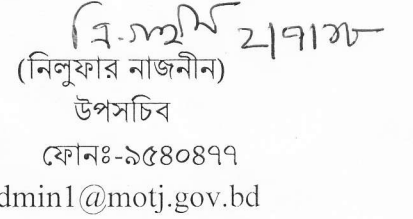 ২।৭।১৮
(নিলুফার নাজনীন)
উপসচিব
ফোনঃ-৯৫৪০৪৭৭
dmin1@motj.gov.bd